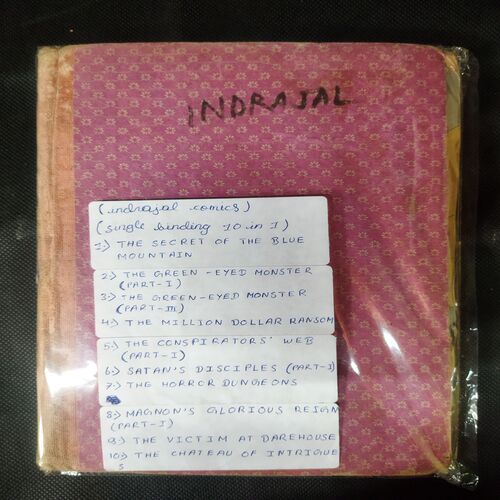 INDRAJAL
(indrajal comics)
(single binding 10 in 1)
1) THE SECRET OF THE BLUE
MOUNTAIN
2) THE GREEN-EYED MONSTER
(PART-I)
3) THE GREEN-EYED MONSTER
(PART-III)
4) THE MILLION DOLLAR RANSOM
5) THE CONSPIRATORS' WEB
(PART-I)
6) SATAN'S DISCIPLES (PART-I)
7) THE HORROR DUNGEONS
8) MAGNON'S GLORIOUS REIGN
(PART-I)
9) THE VICTIM AT DAREHOUSE
10) THE CHATEAU OF INTRIGUE
S